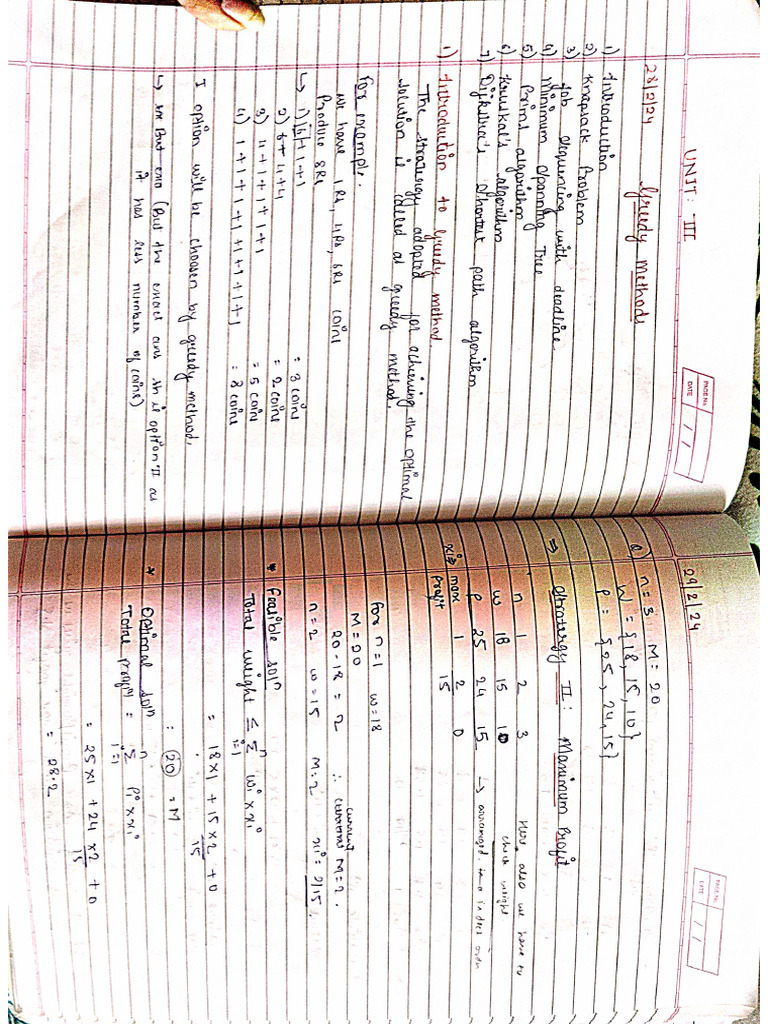 PAGE No.
DATE / /
UNIT: III
28/2/24 Greedy Methods
1) Introduction
2) Knapsack Problem
3) Job sequencing with deadline.
4) Minimum Spanning Tree
5) Prims algorithm
6) Kruskal's algorithm
7) Dijkstra's Shortest path algorithm
1) Introduction to Greedy method.
The stratergy adopted for achieving the optimal
solution is called as greedy method.
For example.
We have 1Rs, 4Rs, 6Rs coins
Produce 8Rs
↳ 1) 6+1+1 = 3 coins
2) 4+4 = 2 coins
3) 4+1+1+1+1 = 5 coins
4) 1+1+1+1+1+1+1+1 = 8 coins
I option will be choosen by greedy method.
↳ But (But the exact ans is option II as
it has less number of coins)
PAGE No.
DATE / /
29/2/24
Q) n = 3 M = 20
W = {18, 15, 10}
P = {25, 24, 15}
⇒ Stratergy II: Maximum Profit
n 1 2 3 Here also we have to
w 18 15 10 check weight
P 25 24 15 → arranged in order
xi⇒ max profit 1 2/15 0
for n=1 w=18
M=20
20-18 = 2 ∴ current M=2.
n=2 w=15 M=2 xi = 2/15
* Feasible solⁿ
Total weight ≤ Σ wi × xi
n
i=1
= 18×1 + 15×2/15 + 0
= 20 = M
* Optimal solⁿ
Total profit = Σ Pi × xi
n
i=1
= 25×1 + 24×2/15 + 0
= 28.2